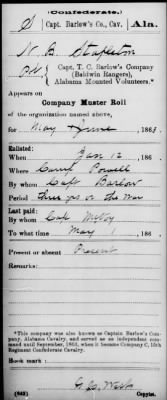 (Confederate.)
S Capt. Barlow's Co., Cav. Ala.
N. B. Stapleton
Pvt, Capt. T. C. Barlow's Company
(Baldwin Rangers),
Alabama Mounted Volunteers.*
Appears on
Company Muster Roll
of the organization named above,
for May & June, 186
Enlisted:
When Jan 12, 186
Where Camp Powell
By whom Capt Barlow
Period three yrs or the War
Last paid:
By whom Capt McVoy
To what time May 1, 186
Present or absent Present
Remarks:
*This company was also known as Captain Barlow's Com-
pany, Alabama Cavalry, and served as an independent com-
mand until September, 1863, when it became Company C, 15th
Regiment Confederate Cavalry.
Book mark:
(642) Copyist.